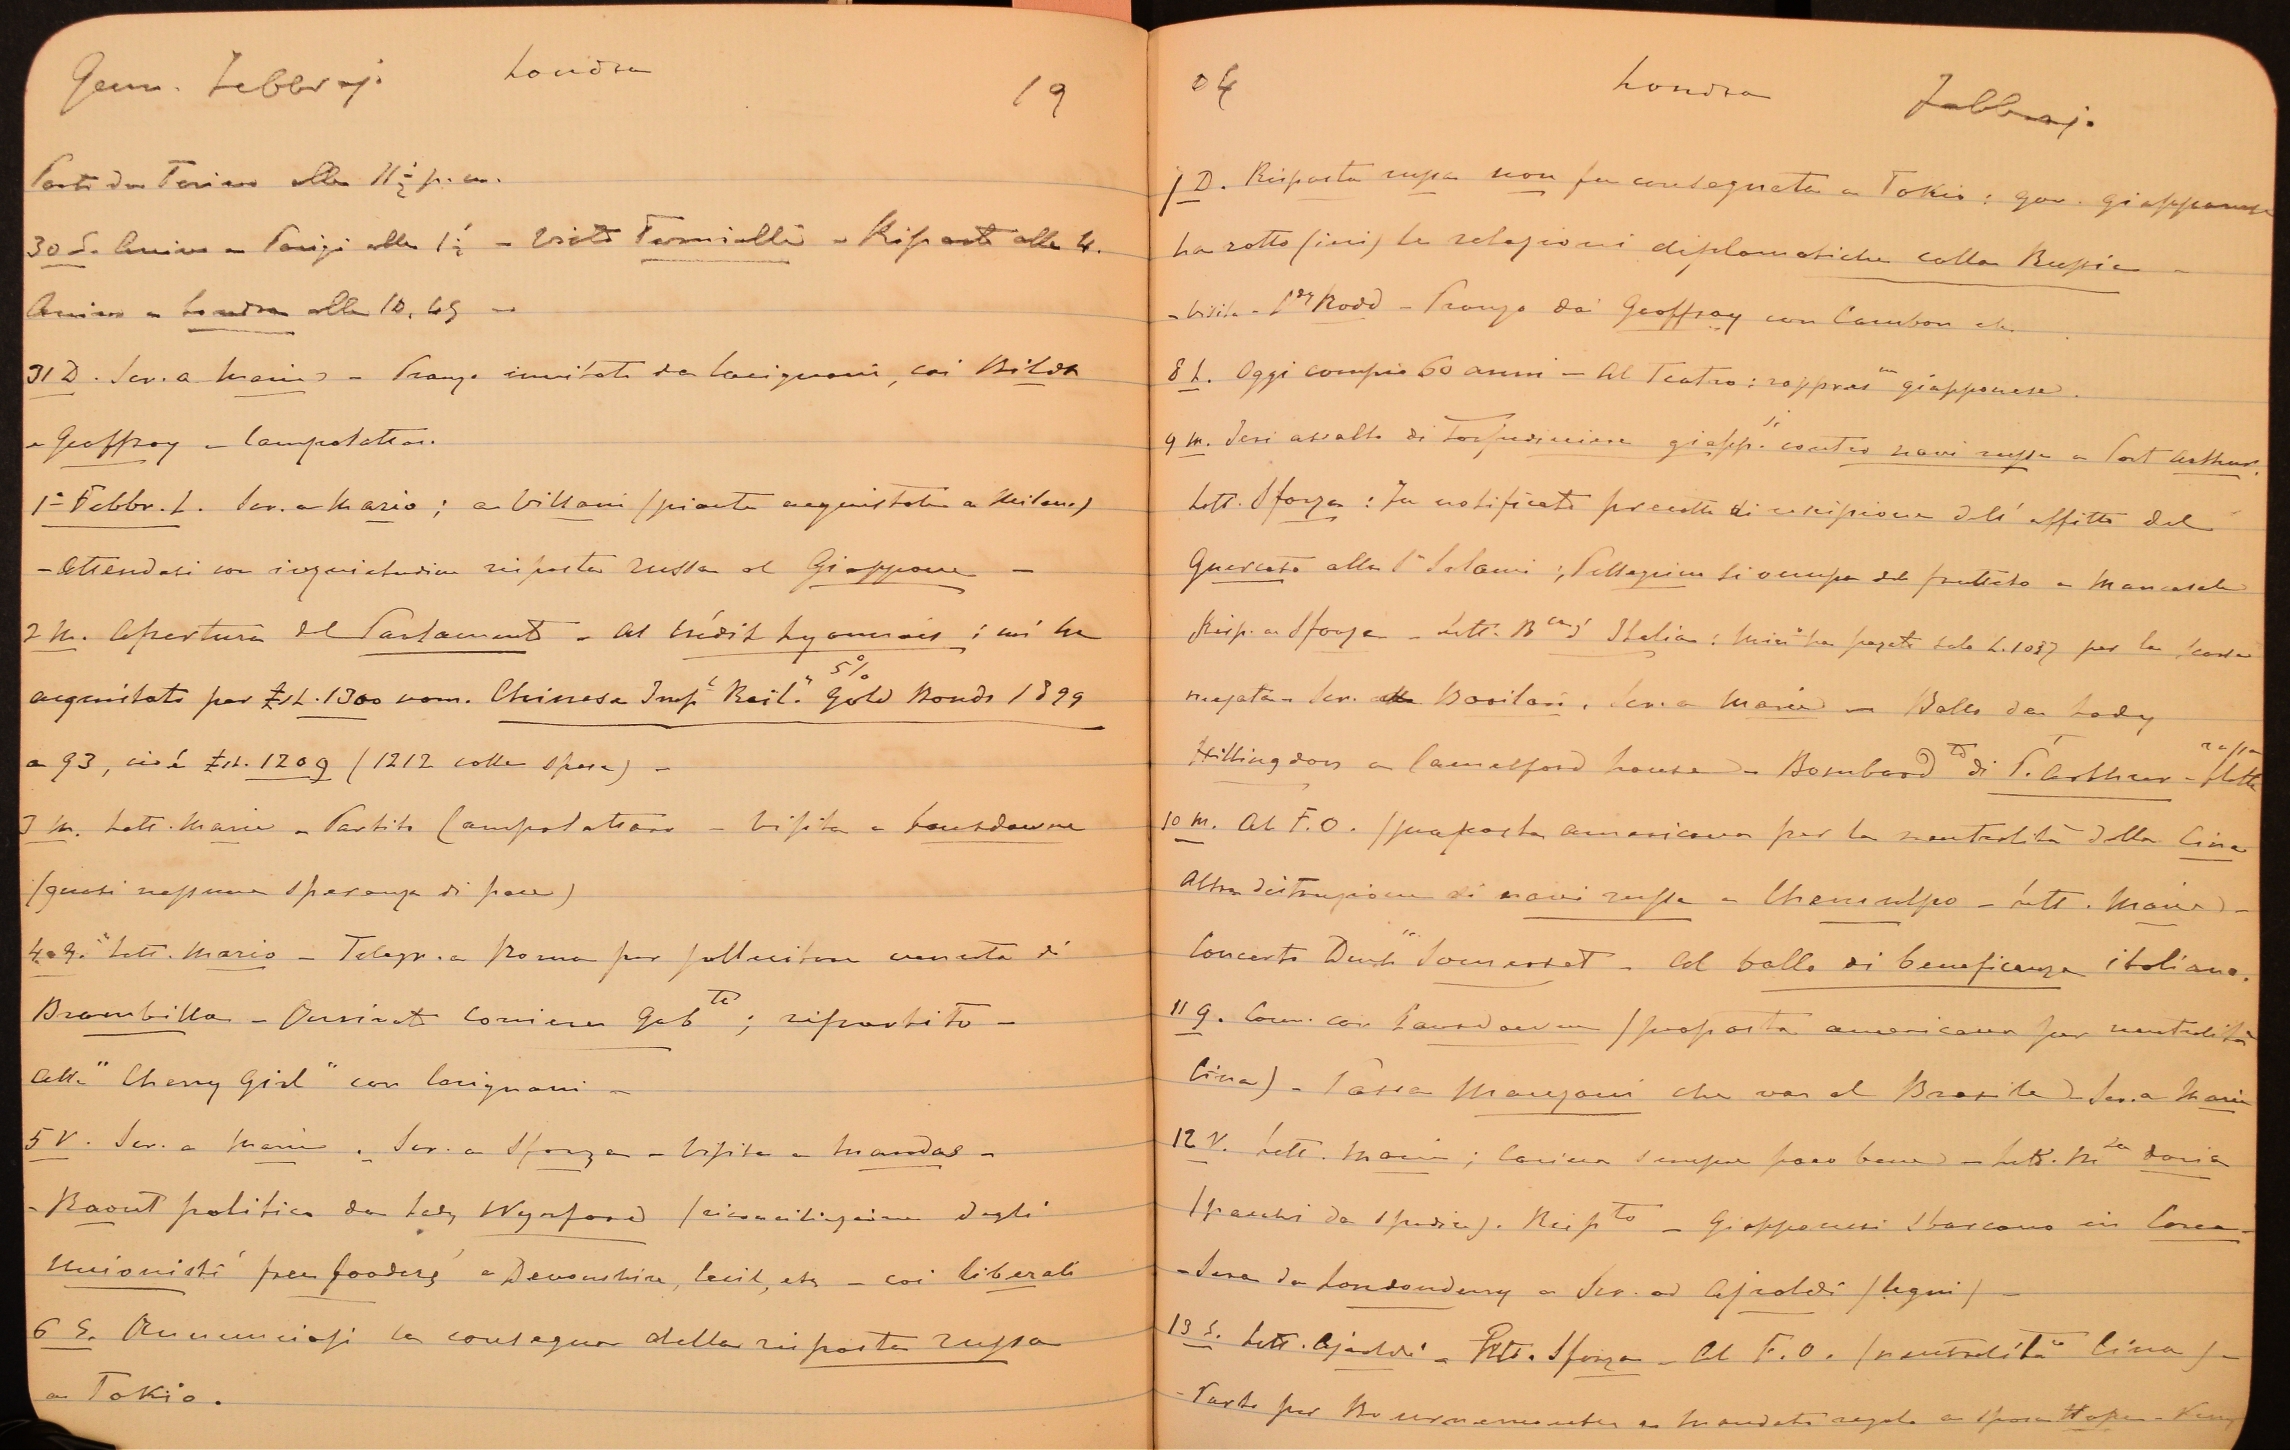 Genn. Febbraj. Londra 19
Parto da Torino alle 11½ p.m.
30 S. Arrivo a Parigi alle 1½ - Visto Tornielli - Riparto alle 4.
Arrivo a Londra alle 10,45 -
31 D. Scr. a Mario - Pranzo invitato da Carignani, coi Bildt
e Geoffray - Campolattaro.
1° Febbr. L. Scr. a Mario; a Villani (piante acquistate a Milano)
- Attendesi con inquietudine risposta russa al Giappone -
2 M. Apertura del Parlamento - Al Crédit Lyonnais; mi ha
acquistato per £st. 1300 nom. Chinese Imp.l Rail.y 5% Gold Bonds 1899
a 93, cioè £st. 1209 (1212 colle spese) -
3 M. Lett. Mario - Partito Campolattaro - Visita a Lansdowne
(quasi nessuna speranza di pace)
4 G. Lett. Mario - Telegr. a Roma per sollecitare venuta di
Brambilla - Arrivato corriere Gab.to; ripartito -
Alla "Cherry Girl" con Carignani -
5 V. Scr. a Mario. Scr. a Sforza - Visita a Mandas -
- Raout politico da Lady Wynford (riconciliazione degli
unionisti free fooders a Devonshire, Cecil, etc - coi liberali
6 S. Annunciasi la consegna della risposta russa
a Tokio.
04 Londra Febbraj.
7 D. Risposta russa non fu consegnata a Tokio: gov. giapponese
ha rotto (ieri) le relazioni diplomatiche colla Russia -
- Visita - Rodd - Pranzo da Geoffray con Cambon etc
8 L. Oggi compio 60 anni - Al Teatro: rappres.ne giapponese.
9 M. Ieri assalto di torpediniere giapp.si contro navi russe a Port Arthur.
Lett. Sforza: Fu notificato precetto di rescissione dell'affitto del
Querceto alla Salami; Pellegrini si occupa del frutteto a Mancasale
Risp. a Sforza - Lett. B.ca d'Italia: ha pagato sole L. 1037 per la
Scr. Basilari. Scr. a Mario - Ballo da Lady
Hillingdon a Camelford house - Bombard.to di P. Arthur - flotta russa
10 M. Al F.O. (proposta americana per la neutralità della Cina
Altra distruzione di navi russe a Chemulpo - Lett. Mario -
Concerto Somerset - Al ballo di beneficenza italiano.
11 G. Conv. con Lansdowne (proposta americana per neutralità
Cina) - Passa Manzoni che va al Brasile - Scr. a Mario
12 V. Lett. Mario; Carina sempre poco bene - Lett. M.sa Doria
(pacchi da spedire). Risp.to - Giapponesi sbarcano in Corea -
- Sera da Londonderry - Scr. ad Ajroldi (legni) -
13 S. Lett. Ajroldi - Lett. Sforza - Al F.O. (neutralità Cina) -
- Parto per Bournemouth - Mandato regalo a sposa Hope -